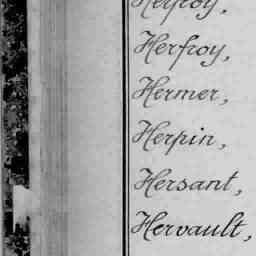 Herfroy,
Hermer,
Herpin,
Hersant,
Hervault,